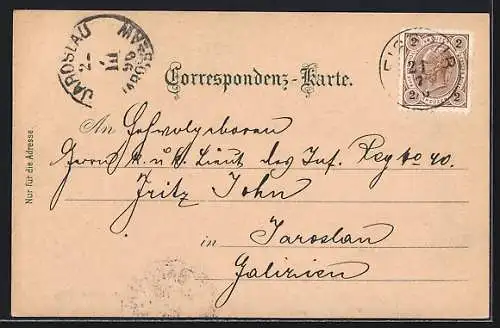 JAROSLAU
2
III
98
2 2
2 2
Correspondenz-Karte.
Nur für die Adresse.
An Hochwolgeboren
Herrn k. u. k. Lieut des Inf. Reg No 40.
Fritz John
in Jaroslau
Galizien